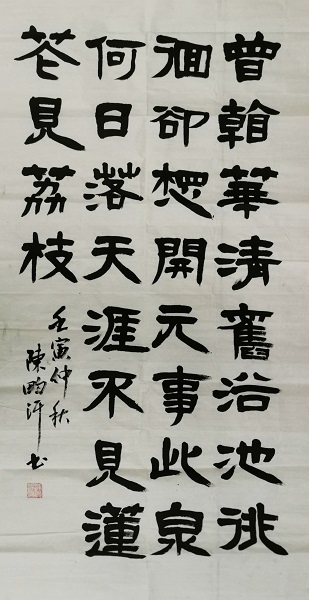 曾翰華清舊浴池徘
徊卻想開元事此泉
何日落天涯不見蓮
花見荔枝
壬寅仲秋
陳書